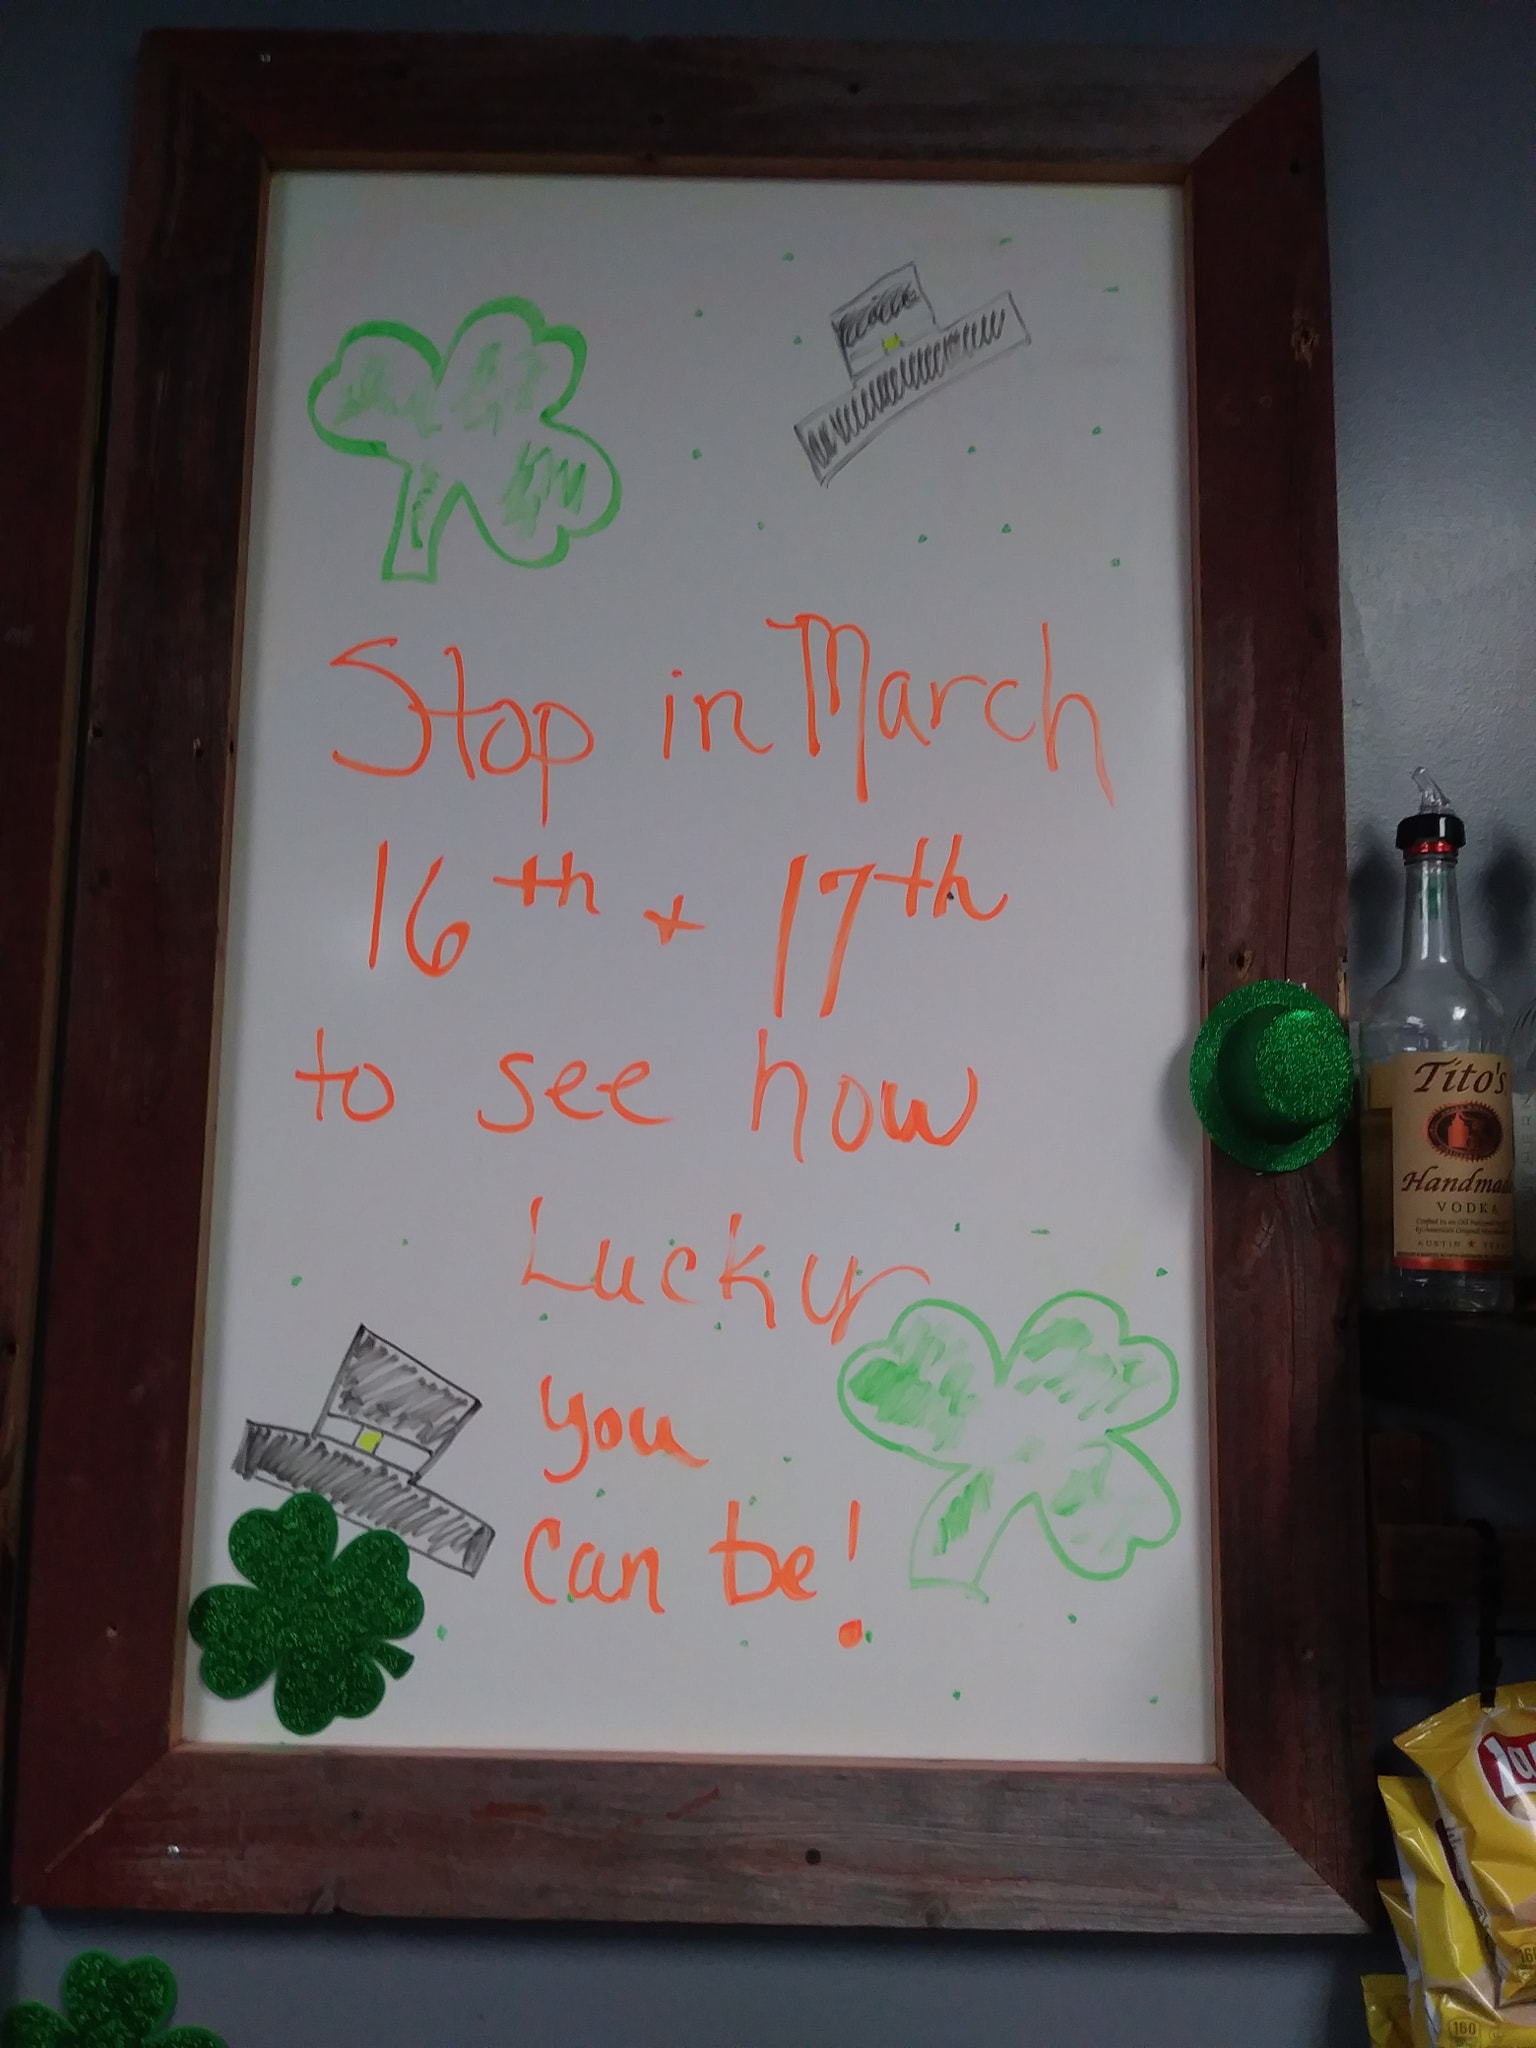 Stop in March
16th + 17th
to see how
Lucky
you
can be!
Tito's
Handmad
VODKA
AUSTIN
160